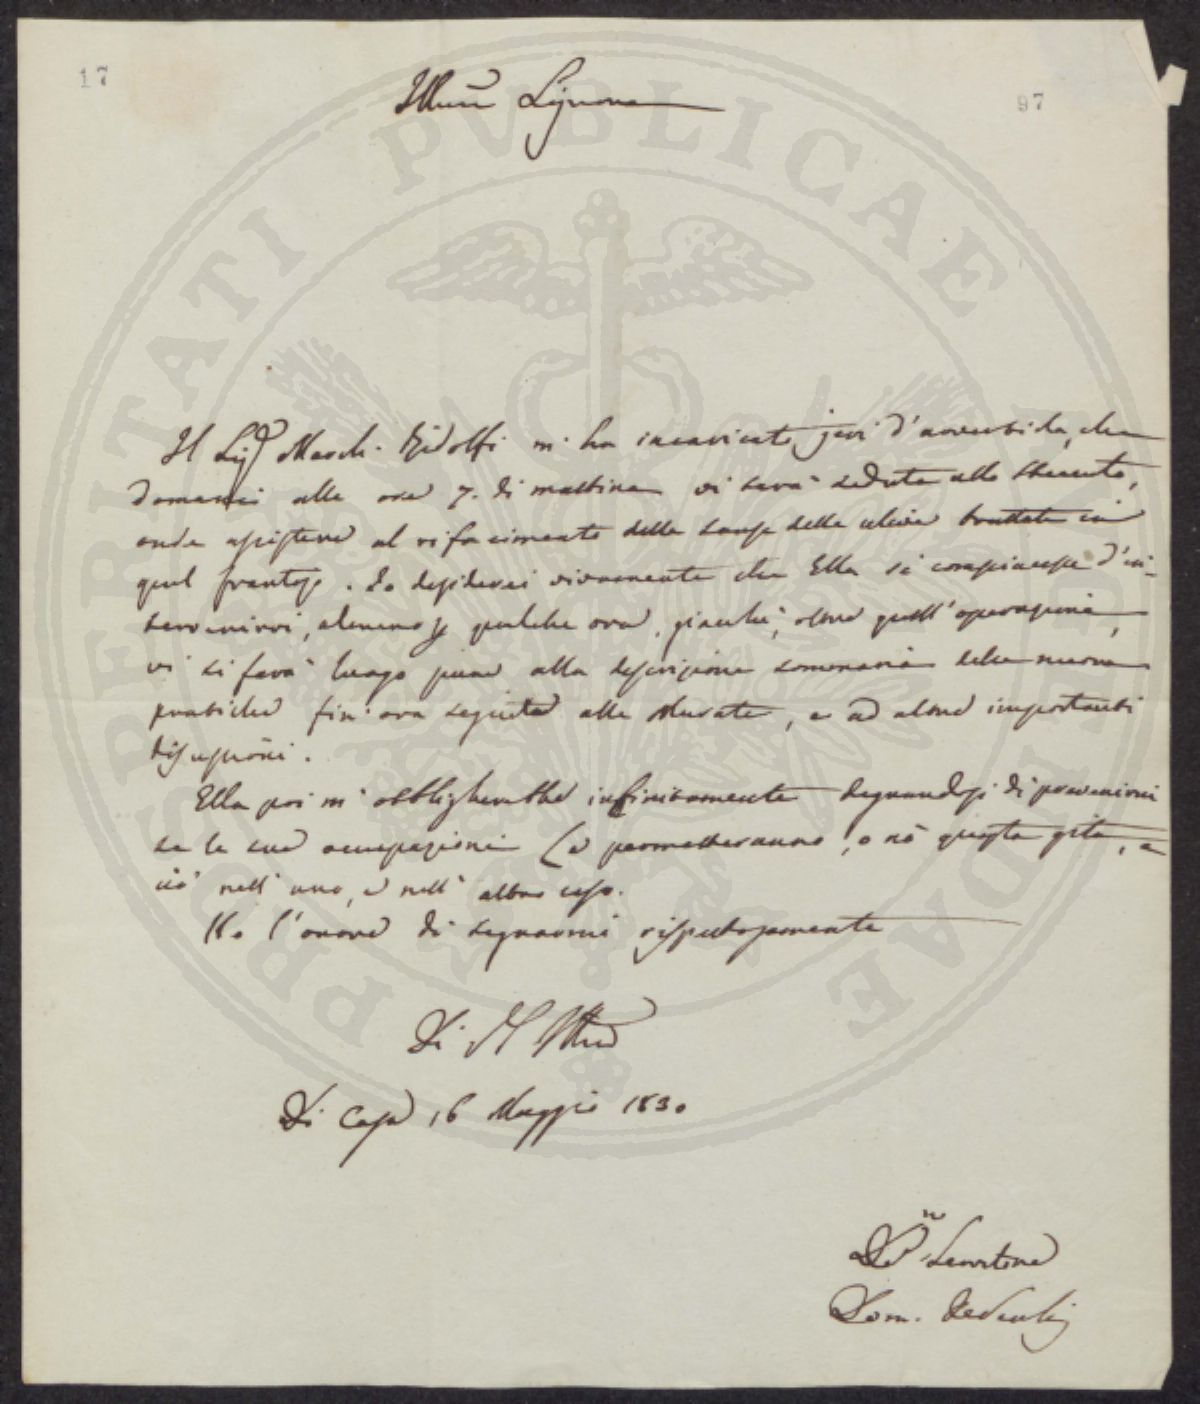 17
97
Illmo Signore
Il Sigr March. Ridolfi m'ha incaricato jeri d'avvertirla, che
domani alle ore 7. di mattina vi sarà seduta allo
onde assistere al rifacimento delle sanse delle ulive fruttate in
quel frantojo. Io desiderei vivamente che Ella si compiacesse d'in-
tervenirvi, almeno p qualche ora, giacchè, oltre quest'operazione,
vi si farà luogo pure alla descrizione sommaria delle nuove
pratiche fin'ora seguite alle Murate, e ad altre importanti
discussioni.
Ella poi m'obbligherebbe infinitamente degnandosi di prevenirmi
se le sue occupazioni Le permetteranno, o nò questa gita, e
ciò nell'uno, e nell'altro caso.
Ho l'onore di segnarmi rispettosamente
Di V. S. Illma
Di Casa 16 Maggio 1830
Devmo Servitore
Dom.
PROSPERITATI PVBLICAE AVGENDAE